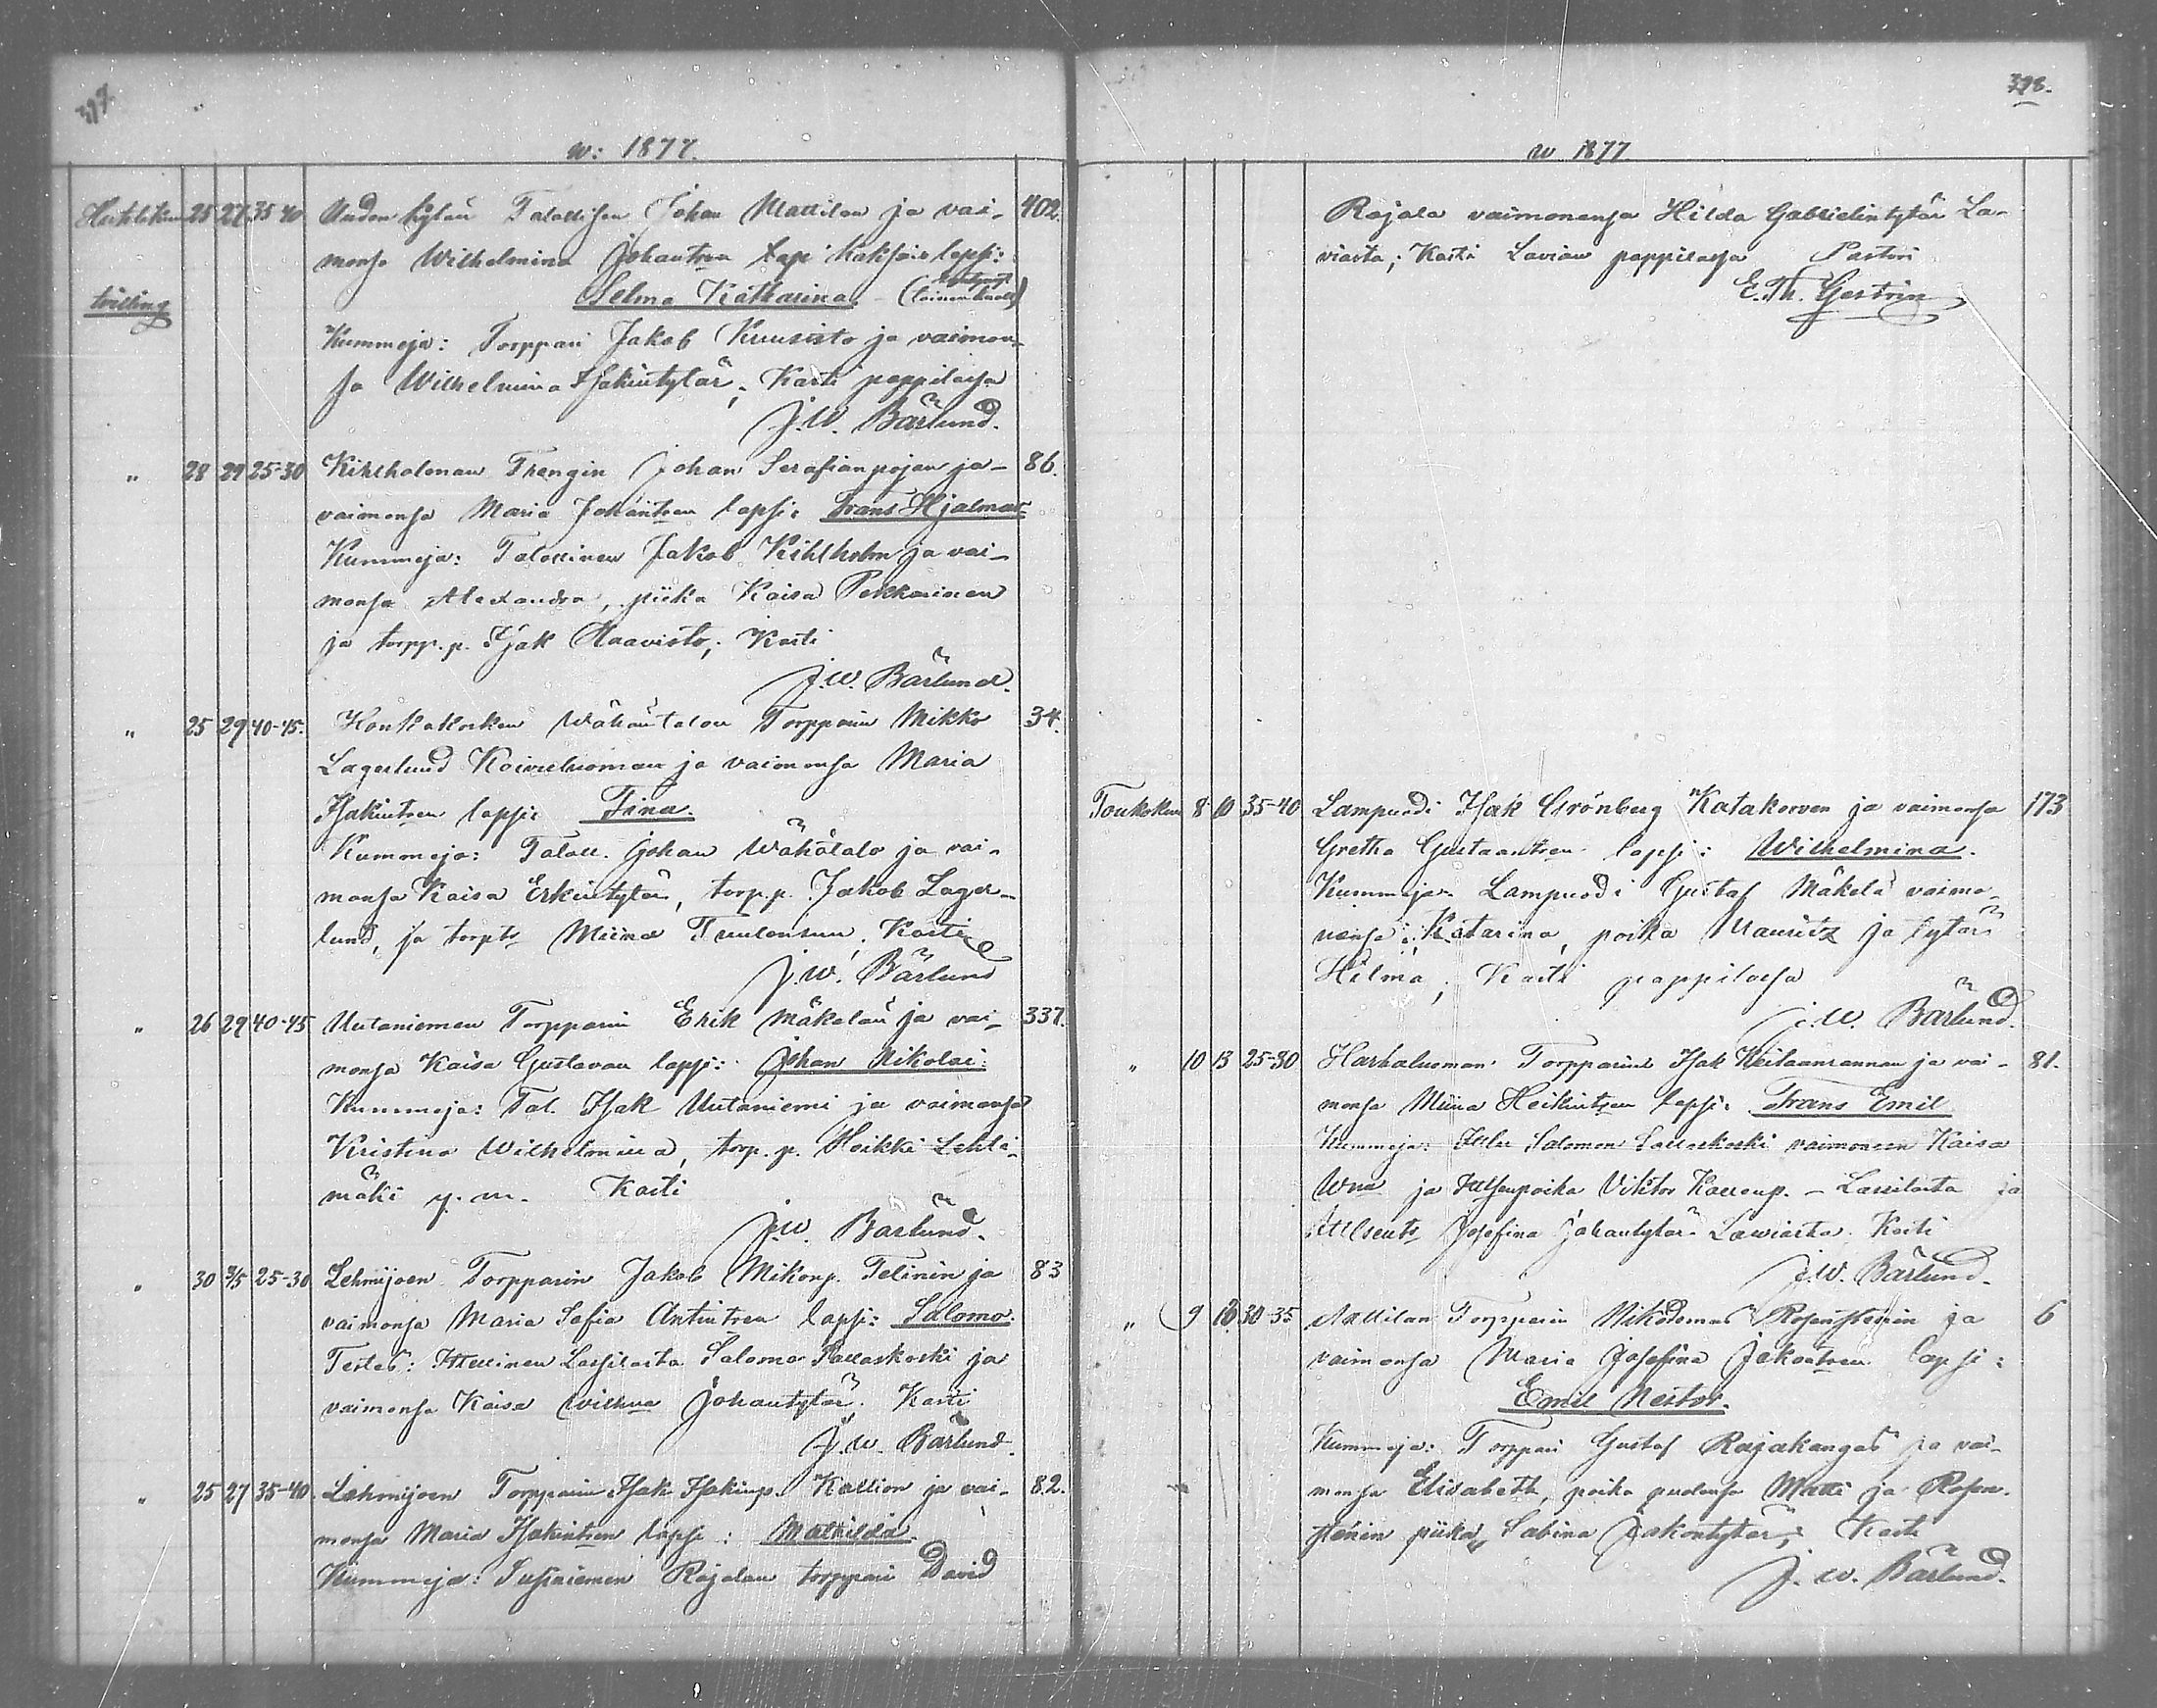 397.
w: 1877.
Huhtikuu 25 27 35-40 Uuden kylän Talollisen Johan Mattilan ja vai- 402.
monsa Wilhelmina Johantren kaksois lapsi:
tvilling Selma Katharina. (toinen kuoll)
Kummeja: Torppari Jakob Kuusisto ja vaimon-
sa Wilhelmina Isakintytär; Kasti pappilassa
J.W. Bärlund.
" 28 29 25-30 Kihlholman Trengin Johan Serafianpojan ja 86.
vaimonsa Maria Johantren lapsi: Frans Hjalmar
Kummeja: Talollinen Jakob Kihlholm ja vai-
monsa Alexandra, piika Kaisa Pekkarinen
ja torpp.p. Isak Haavisto; Kasti
J.W. Bärlund.
" 25 29 40-45. Honkakosken Wähäntalon Torpparin Mikko 34.
Lagerlund Koivuluoman ja vaimonsa Maria
Isakintren lapsi: Fina.
Kummeja: Taloll. Johan Wähätalo ja vai-
monsa Kaisa Erkintytär, torp.p. Jakob Lager-
lund, ja torpts Miina Tuulensuu; Kasti
J.W. Bärlund
" 26 29 40-45 Uutaniemen Torpparin Erik Mäkelän ja vai- 337.
monsa Kaisa Gustavan lapsi: Johan Nikolai.
Kummeja: Tal. Isak Uutaniemi ja vaimonsa
Kristina Wilhelmina, torp.p. Heikki Lehti-
mäki y.m. Kasti
J.W. Bärlund.
" 30 3/5 25-30 Lehmijoen Torpparin Jakob Mikonp. Telinin ja 83
vaimonsa Maria Sofia Antintren lapsi: Salomo.
Testes: Itellinen Lassilasta Salomo Sallaskoski ja
vaimonsa Kaisa Wilhna Johantytär. Kasti
J.W. Bärlund.
" 25 27 35-40. Lehmijoen Torpparin Isak Isakinp. Kallion ja vai- 82.
monsa Maria Isakintren lapsi: Mathilda.
Kummeja: Susiniemen Rajalan torppari David
398.
w 1877
Rajala vaimonensa Hilda Gabrielintytär La-
viasta; Kasti Lavian pappilassa Pastori
E. Th. Gestrin
Toukokuu 8 10 35-40 Lampuodi Isak Grönberg Katakorven ja vaimonsa 173
Gretha Gustaantren lapsi: Wilhelmina.
Kummeja: Lampuodi Gustaf Mäkelä vaimo-
nensa Katarina, poika Mauritz ja tytär
Hilma; Kasti pappilassa
J.W. Bärlund.
" 10 13 25-30 Harhaluoman Torpparin Isak Keilaanrannan ja vai- 81.
monsa Miina Heikintren lapsi: Frans Emil
Kummeja: Itllu Salomon Sallaskoski vaimoneen Kaisa
Wna ja Itllsenpoika Viktor Kallenp. - Lassilasta ja
Itllsents Josefina Johantytär Laviasta. Kasti
J.W. Bärlund.
" 9 13 30-35 Mattilan Torpparin Nikodemus Rosenstenin ja 6
vaimonsa Maria Josefina Jakontren lapsi:
Emil Nestor.
Kummeja: Torppari Gustaf Rajakangas ja vai-
monsa Elisabeth, poika puolensa Matti ja Rosen-
stenin piika Sabina Jakontytär; Kasti
J.W. Bärlund.